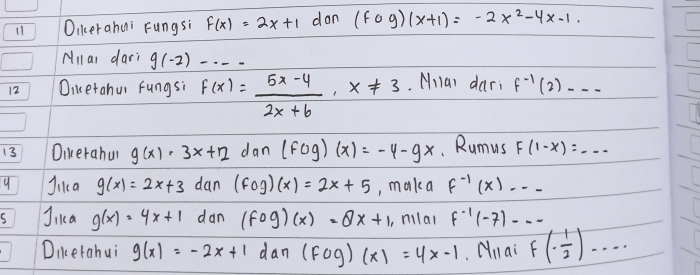 11 Diketahui Fungsi F(x) = 2x+1 dan (Fog)(x+1) = -2x²-4x-1.
Nilai dari g(-2) ----
12 Diketahui Fungsi F(x) = 5x-4 / 2x+6 , x ≠ 3. Nilai dari F⁻¹(2) ---
13 Diketahui g(x) = 3x+12 dan (Fog)(x) = -4-9x. Rumus F(1-x) = ---
4 Jika g(x) = 2x+3 dan (Fog)(x) = 2x+5, maka F⁻¹(x) ---
5 Jika g(x) = 4x+1 dan (Fog)(x) = 8x+1, nilai F⁻¹(-7) ---
Diketahui g(x) = -2x+1 dan (Fog)(x) = 4x-1. Nilai F(-1/2) ----